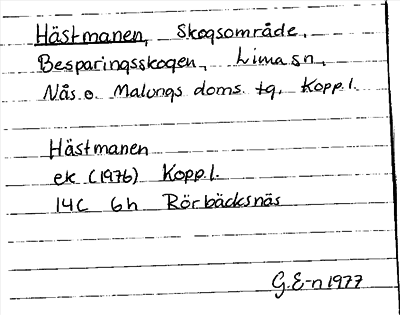 Hästmanen, Skogsområde,
Besparingsskogen, Lima sn,
Nås o. Malungs doms. tg, Kopp. l.
Hästmanen
ek (1976) Kopp. l.
14C 6h Rörbäcksnäs
G.E-n 1977